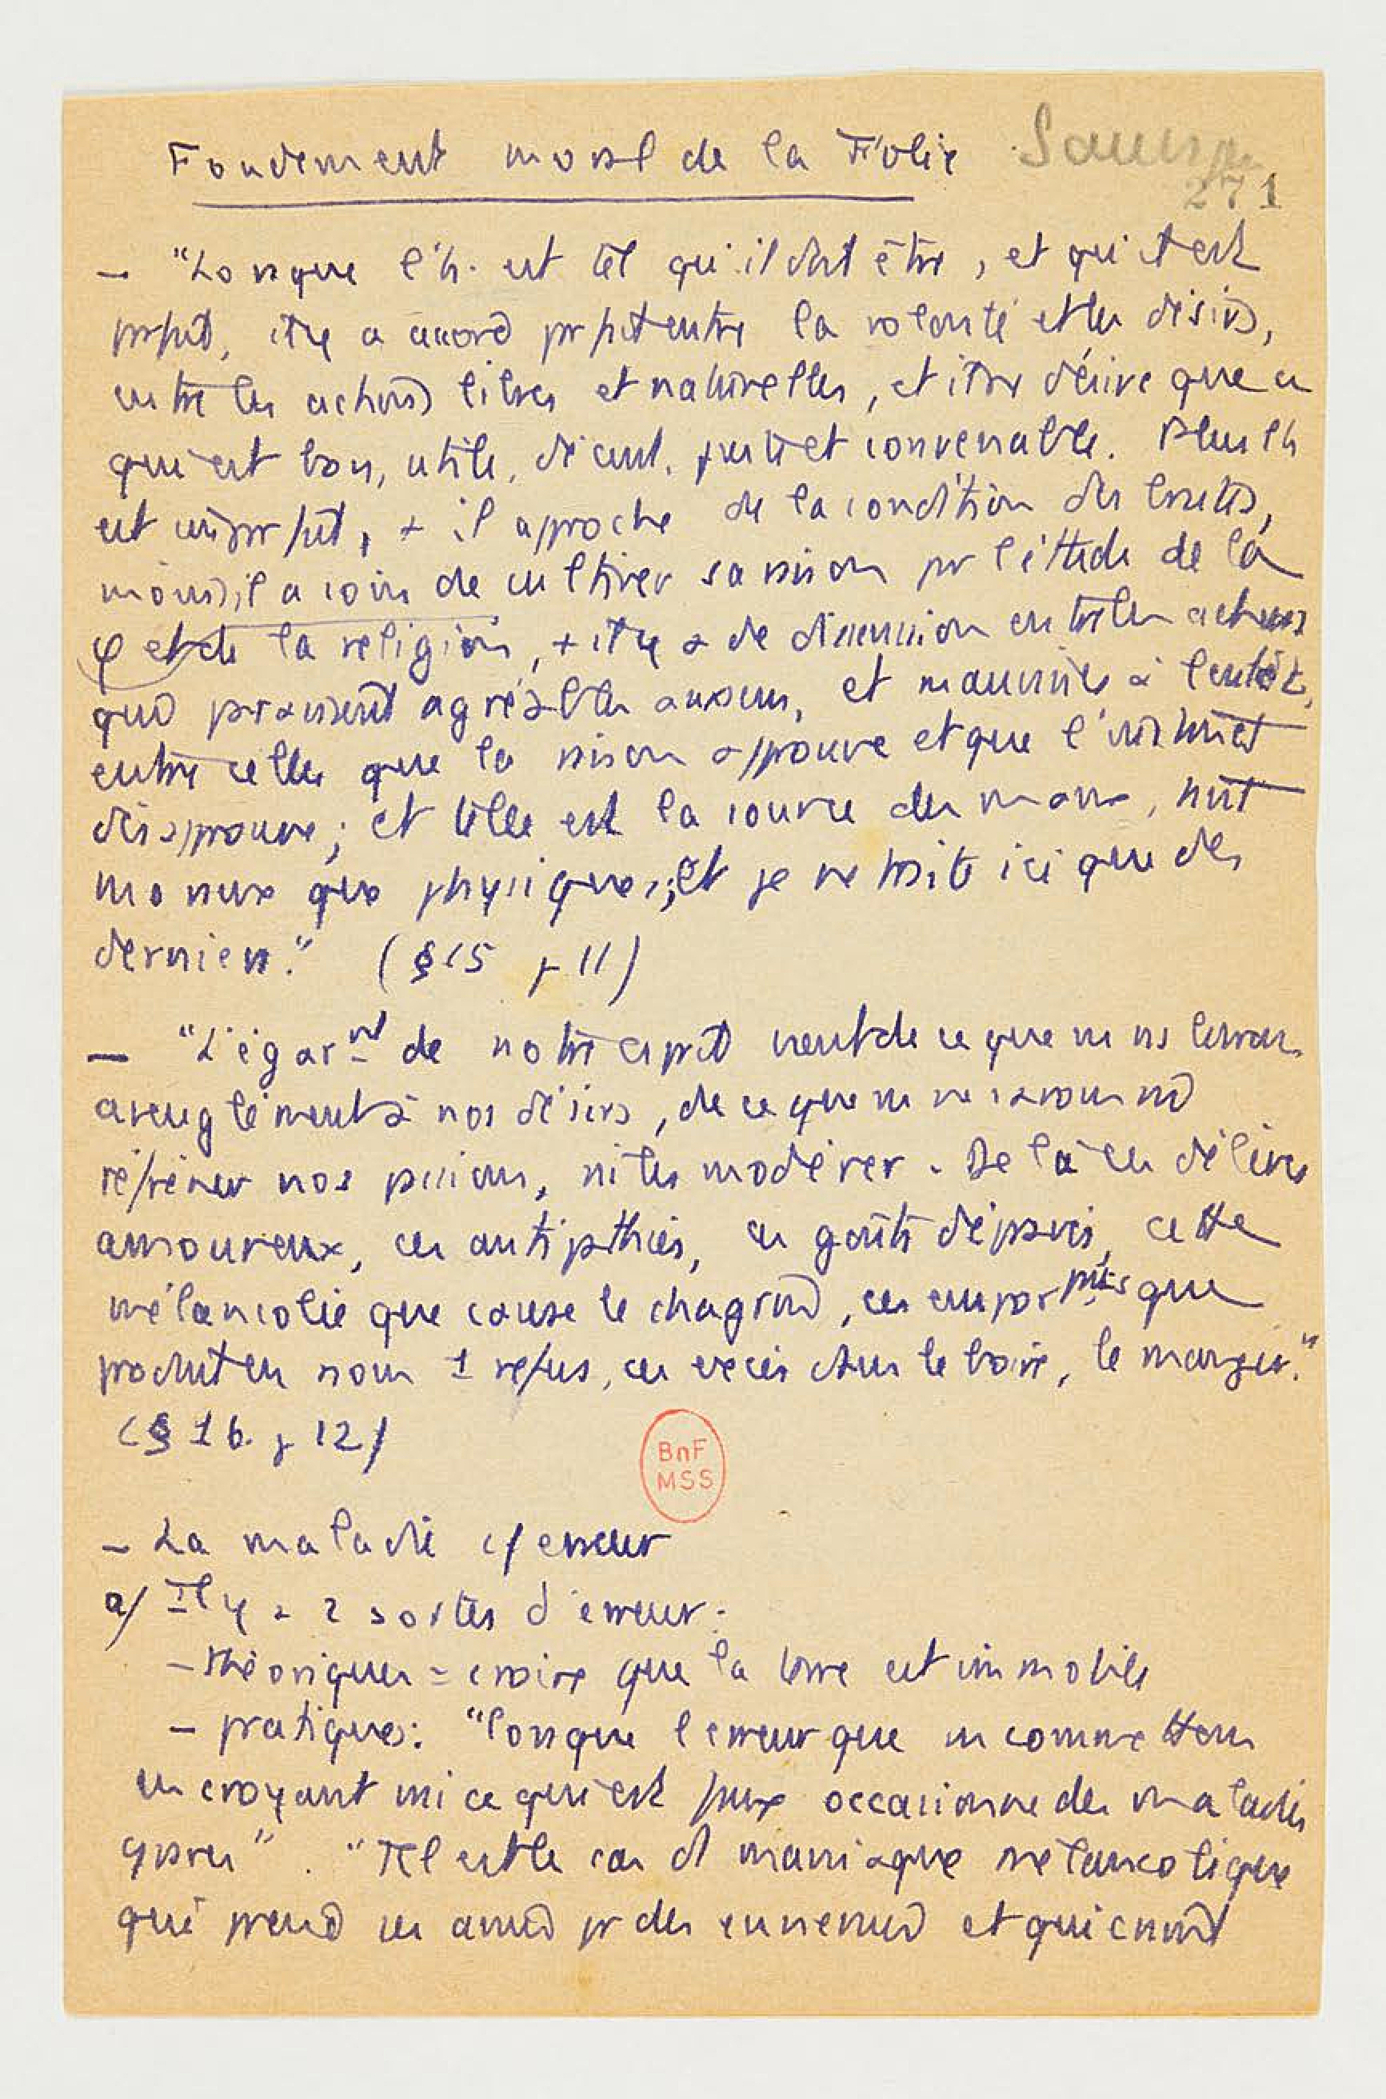 Fondement moral de la Folie Sauvages
271
– "Lorsque l'h. est tel qu'il doit être, et qu'il est
prfait, il y a accord prfait entre la volonté et les désirs,
entre les actions libres et naturelles, et il ne désire que ce
qui est bon, utile, décent, juste et convenable. Plus l'h
est imprfait, + il aproche de la condition des brutes,
moins il a soin de cultiver sa raison pr l'étude de la
φ et de la religion, + il y a de dissension entre les actions
qui paraissent agréables aux sens, et mauvaises à l'entdt,
entre celles que la raison approuve et que l'instinct
désapprouve; et telle est la source des maux, tant
moraux que physiques; et je ne traite ici que des
derniers." (§ 15 p 11)
– "L'égarmt de notre esprit vient de ce que ns ns livrons
aveuglément à nos désirs, de ce que ns ne savons ni
réfréner nos passions, ni les modérer. De là ces délires
amoureux, ces antipathies, ces goûts dépravés, cette
mélancolie que cause le chagrin, ces emportmts que
produit en nous 1 refus, ces excès dans le boire, le manger."
(§ 16. p 12)
BnF
MSS
– La maladie c/ erreur
a/ Il y a 2 sortes d'erreur:
– théoriques = croire que la terre est immobile
– pratiques: "lorsque l'erreur que ns commettons
en croyant vrai ce qui est faux occasionne des maladies
graves". "Tel est le cas d'1 maniaque mélancolique
qui prend ses amis pr des ennemis et qui craint